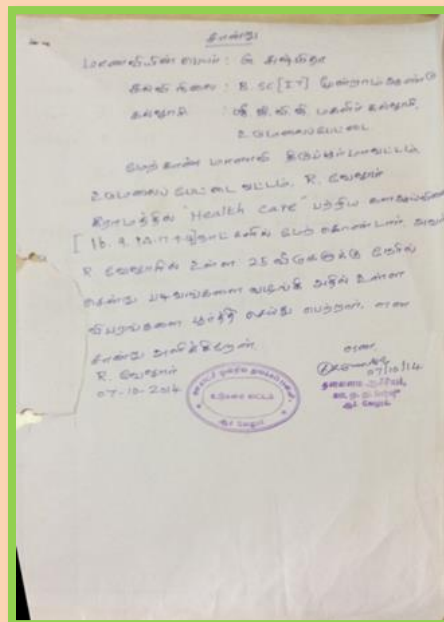 சான்று
மாணவியின் பெயர் :
கல்வி நிலை : B. SC [IT] மூன்றாம் ஆண்டு
கல்லூரி : ஸ்ரீ ஜி.வி.ஜி. மகளிர் கல்லூரி,
உடுமலைப்பேட்டை
மேற்காண் மாணவி திருப்பூர் மாவட்டம்
உடுமலைப் பேட்டை வட்டம், R. வேலூர்
கிராமத்தில் "Health Care" பற்றிய
நாட்களில் மேற்கொண்டார். அவர்
R வேலூரில் உள்ள 25 வீடுகளுக்கு நேரில்
சென்று படிவங்களை வழங்கி அதில் உள்ள
விபரங்களை பூர்த்தி செய்து பெற்றார். என
சான்று அளிக்கிறேன்.
R. வேலூர்
07-10-2014
07/10/14
தலைமை ஆசிரியர்,
உடுமலை வட்டம்